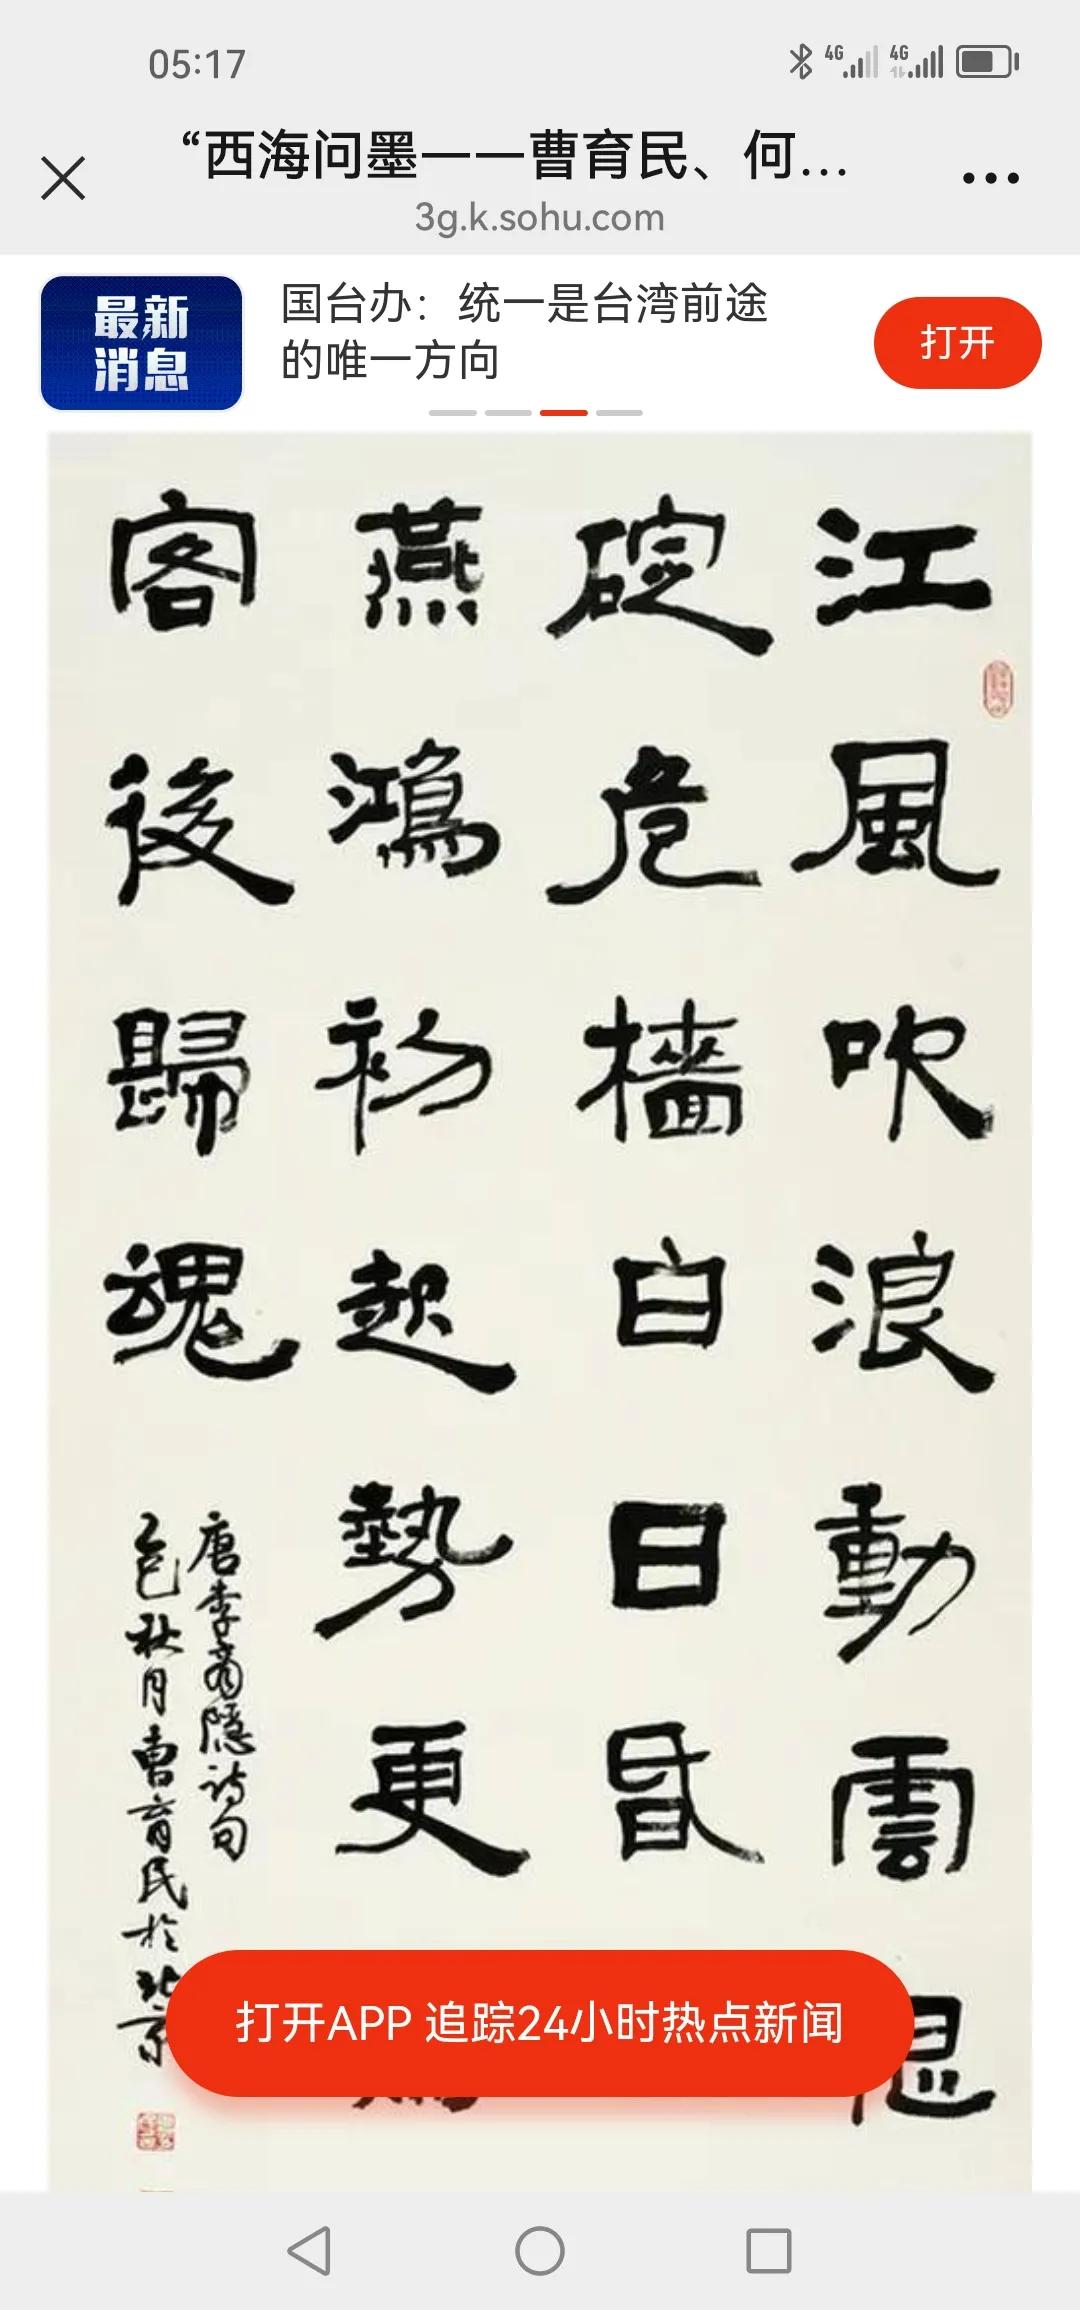 05:17
4G 4G
“西海问墨——曹育民、何...
3g.k.sohu.com
最新
消息
国台办：统一是台湾前途
的唯一方向
打开
江風吹浪動雲
碇危檣白日昏
燕鴻初起勢更
客後歸魂
唐李商隱詩句
乙巳秋月曹育民於北京
打开APP 追踪24小时热点新闻